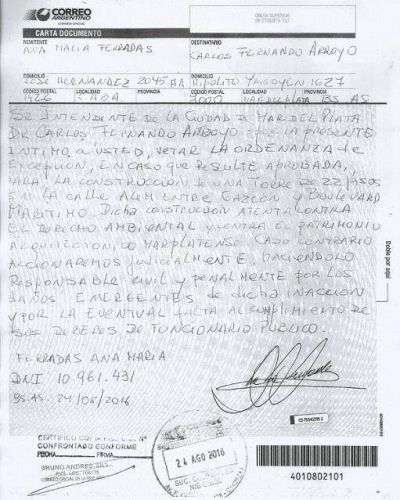 CORREO
ARGENTINO
CARTA DOCUMENTO
REMITENTE
ANA MARIA FERRADAS
DESTINATARIO
CARLOS FERNANDO ARROYO
DOMICILIO
JOSE HERNANDEZ 2045
DOMICILIO
HIPOLITO YRIGOYEN 1627
CÓDIGO POSTAL LOCALIDAD PROVINCIA
1426 CABA
CÓDIGO POSTAL LOCALIDAD PROVINCIA
7000 MAR DEL PLATA BS AS
SR INTENDENTE DE LA CIUDAD DE MAR DEL PLATA
DR CARLOS FERNANDO ARROYO POR LA PRESENTE
INTIMO A USTED, VETAR LA ORDENANZA de
EXCEPCION, EN CASO QUE RESULTE APROBADA,
PARA LA CONSTRUCCION DE UNA TORRE DE 22 PISOS
EN LA CALLE ALEM ENTRE GASCON Y BOULEVARD
MARITIMO. DICHA CONSTRUCCION ATENTA CONTRA
EL DERECHO AMBIENTAL Y CONTRA EL PATRIMONIO
ARQUITECTONICO MARPLATENSE. CASO CONTRARIO
ACCIONAREMOS JUDICIALMENTE, HACIENDOLO
RESPONSABLE CIVIL Y PENALMENTE POR LOS
DAÑOS EMERGENTES DE DICHA INACCION
Y POR LA EVENTUAL FALTA AL CUMPLIMIENTO DE
SUS DEBERES DE FUNCIONARIO PUBLICO.
FERRADAS ANA MARIA
DNI 10 961.431
BS.AS. 24/08/2016
Doble por aquí
CONFRONTADO CONFORME
FECHA FIRMA
BRUNO ANDRES
24 AGO 2016
4010802101